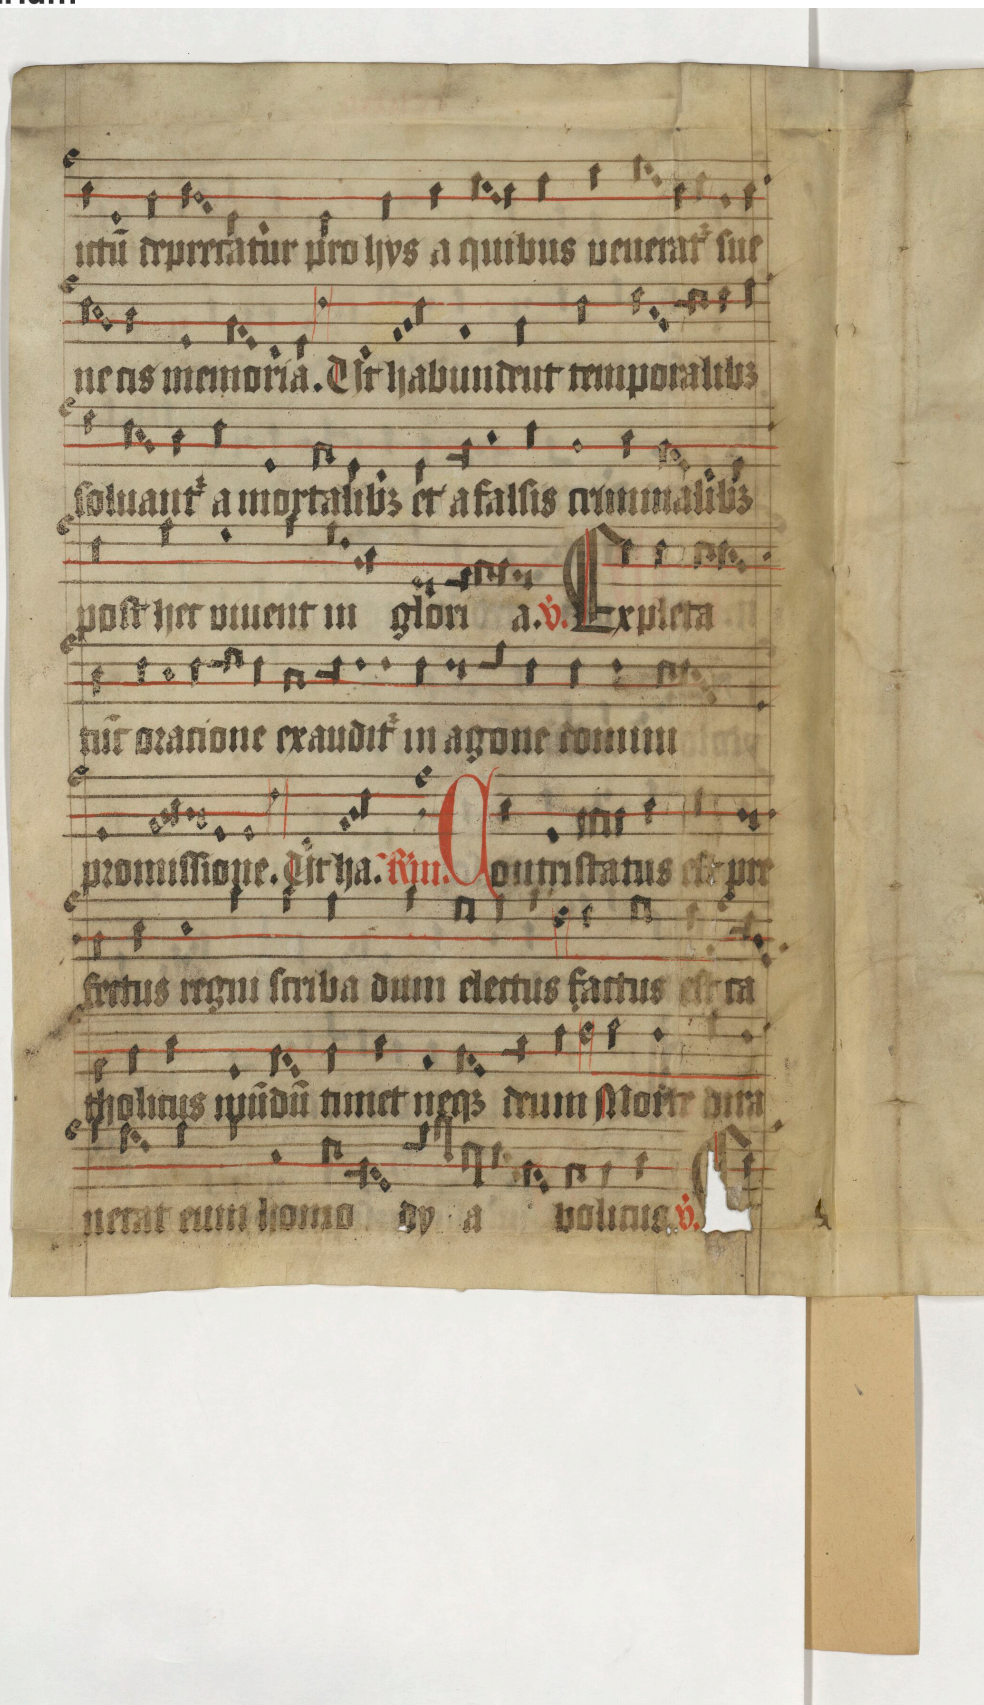 ictū deprecatur pro hys a quibus venerat᷑ sue
necis memoria. Vt habundent temporalibꝫ
soluant᷑ a mortalibꝫ et a falsis criminalibꝫ
post hec viuent in glori a. v̇. Expleta
tur oracione exaudit᷑ in agone domini
promissione. Vt ha. Rm. Contristatus est pre
fectus regni scriba dum electus factus est ca
tholicus mūdū timet neqꝫ deum Morte dira
uerat eum homo dy a bolicus. v̇.